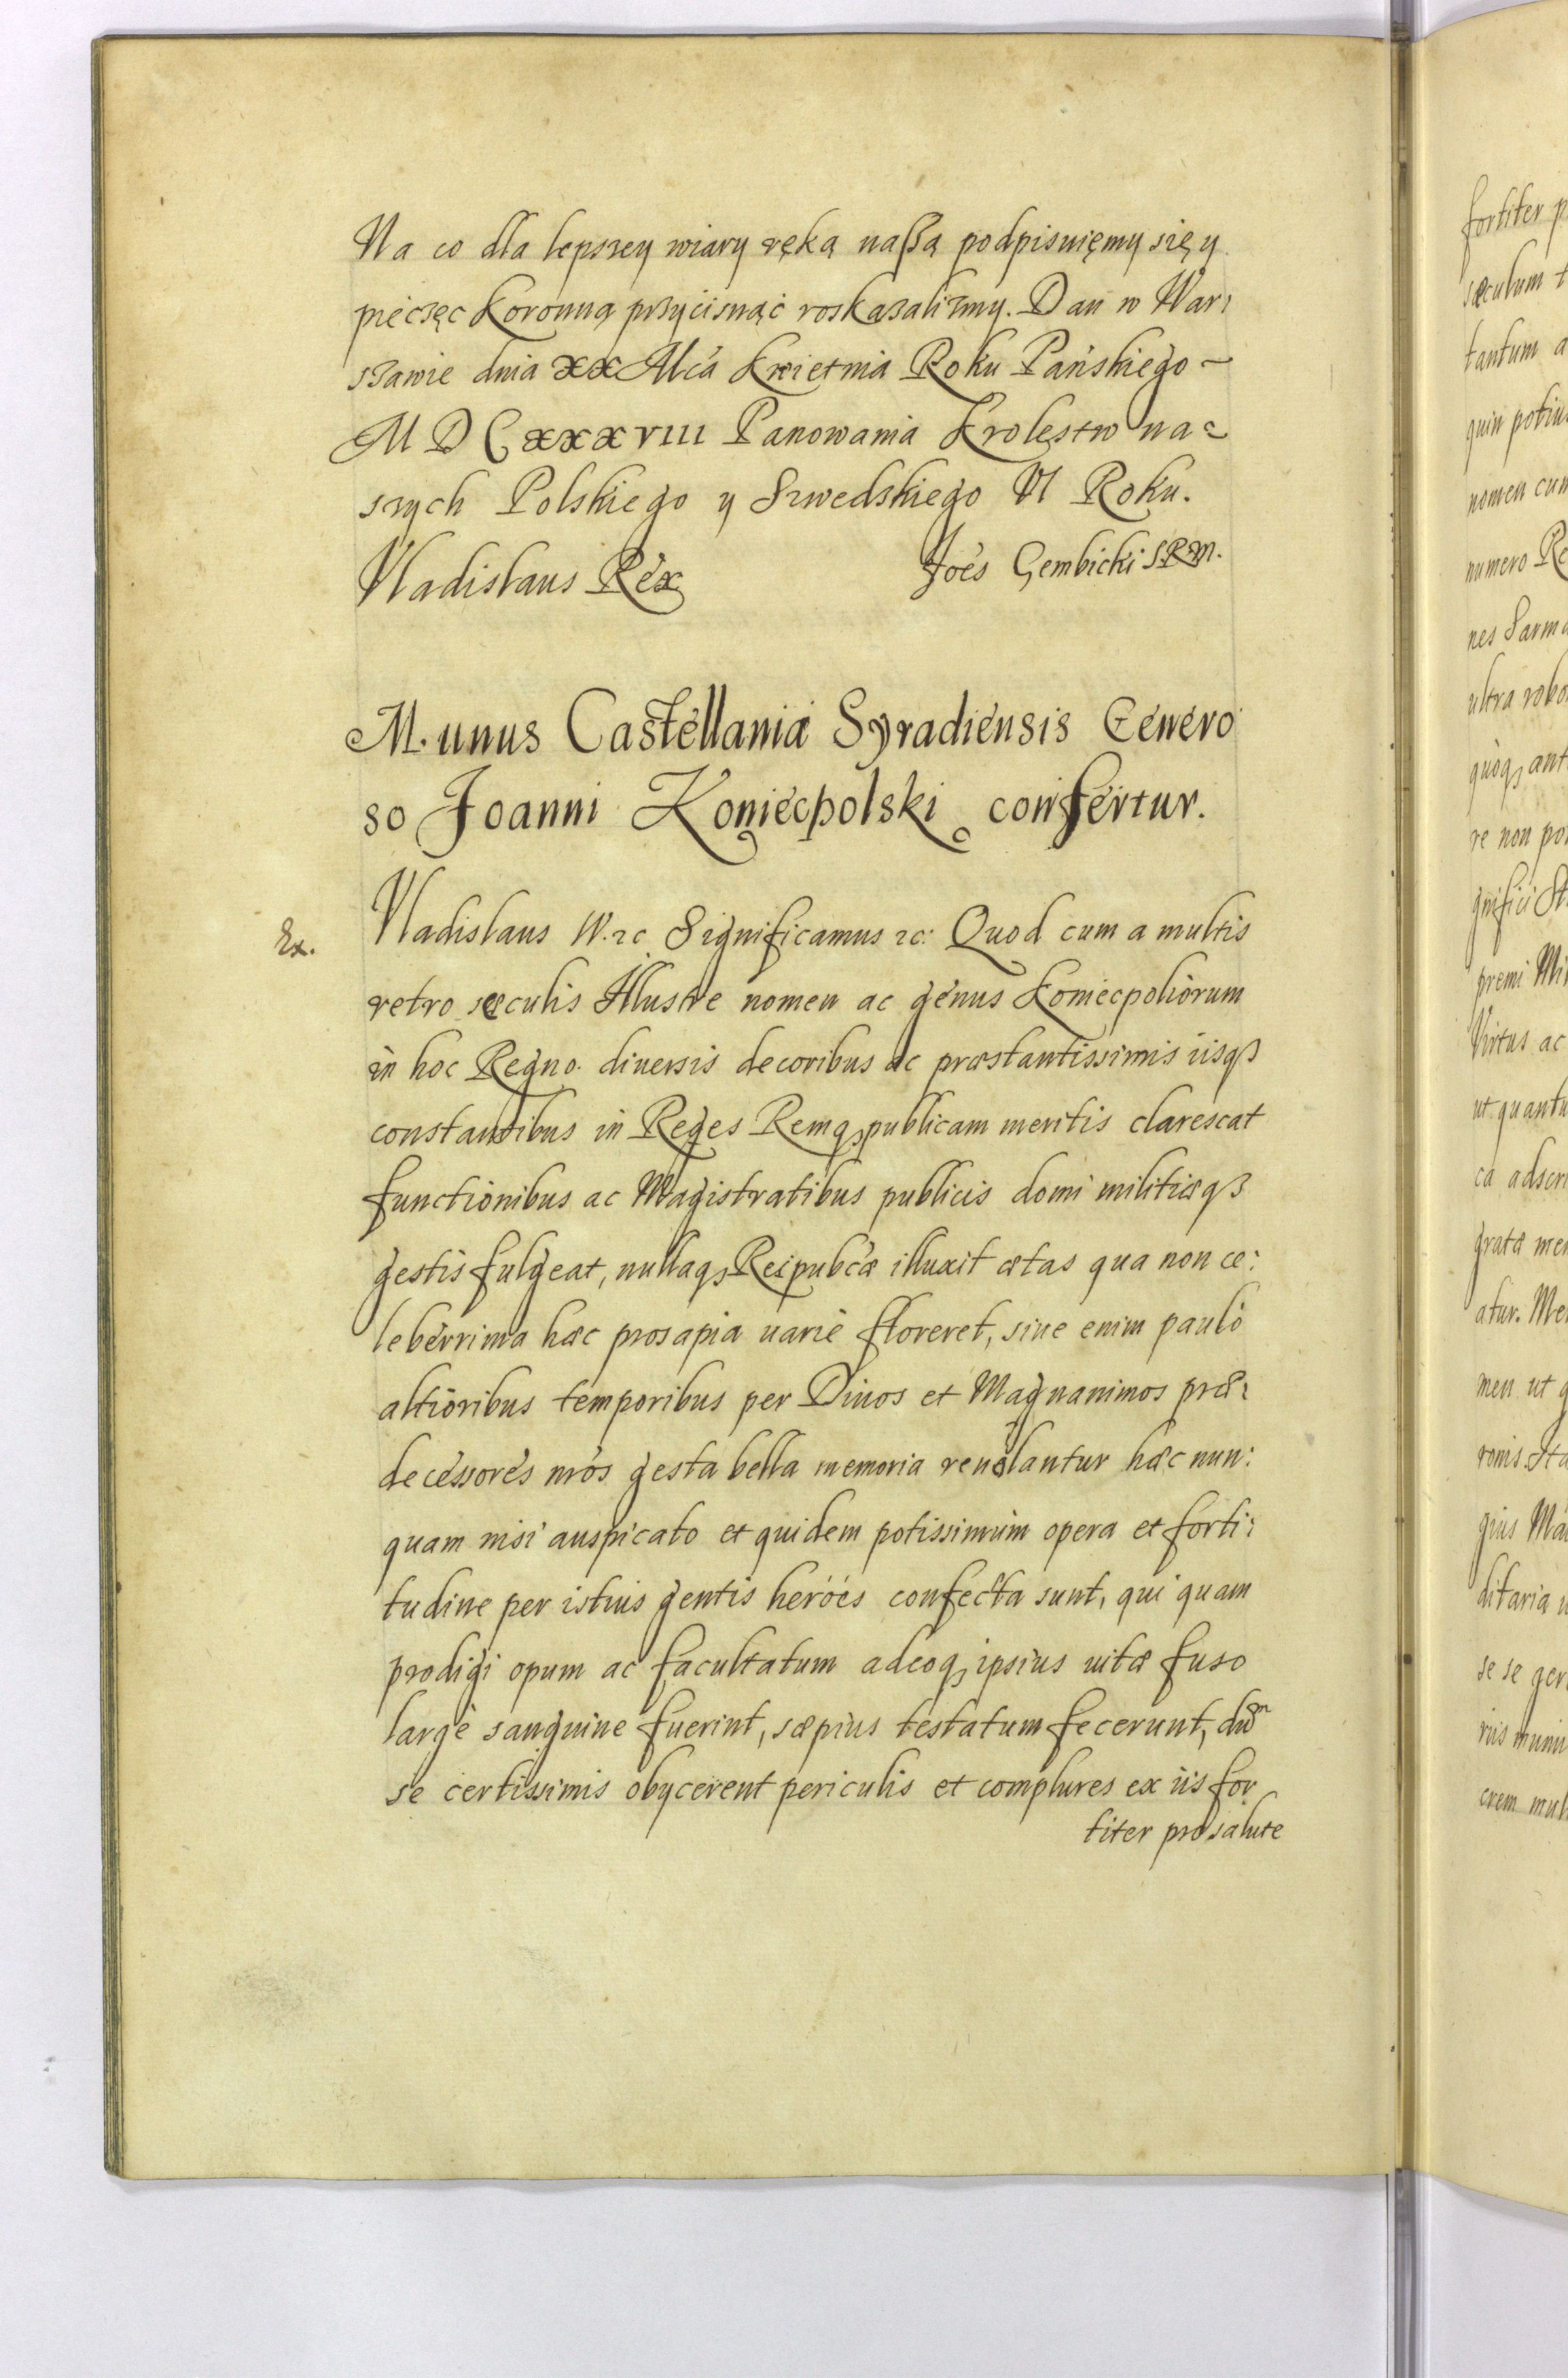 Na co dla lepszey wiary ręką naßą podpisuięmy się y
pieczęc koronną przycisnąć roskazalizmy. Dan w War:
szawie dnia XX Mca Kwietnia Roku Pańskiego -
M D C XXXVIII Panowania Krolęstw na:
szych Polskiego y Szwedskiego VI Roku.
Vladislaus Rex Joes Gembicki SRM.
Munus Castellaniæ Syradiensis Genero
so Joanni Koniecpolski confertur.
Ex.
Vladislaus IV. &c Significamus &c: Quod cum a multis
retro sæculis Illustre nomen ac genus Koniecpoliorum
in hoc Regno diuersis decoribus ac præstantissimis iisqʒ
constantibus in Reges Remqʒ publicam meritis clarescat
functionibus ac Magistratibus publicis domi militiæqʒ
gestis fulgeat, nullaqʒ Reipubcæ illuxit ætas qua non ce:
leberrima hæc prosapia uariè floreret, siue enim paulò
altioribus temporibus per Diuos et Magnanimos præ:
decessores nros gesta bella memoria reuolantur hæc nun:
quam nisi auspicato et quidem potissimùm opera et forti:
tudine per istius gentis heroes confecta sunt, qui quam
prodigi opum ac facultatum adeoqʒ ipsius uitæ fuso
largè sanguine fuerint, sæpius testatum fecerunt, dum
se certissimis obycerent periculis et complures ex iis for
titer pro salute
fortiter
sæculum
tantum
quin potius
nomen cum
numero
nes
ultra
quoqʒ
re non
premi
Virtus ac
ca
atur.
men ut
ditaria
se se